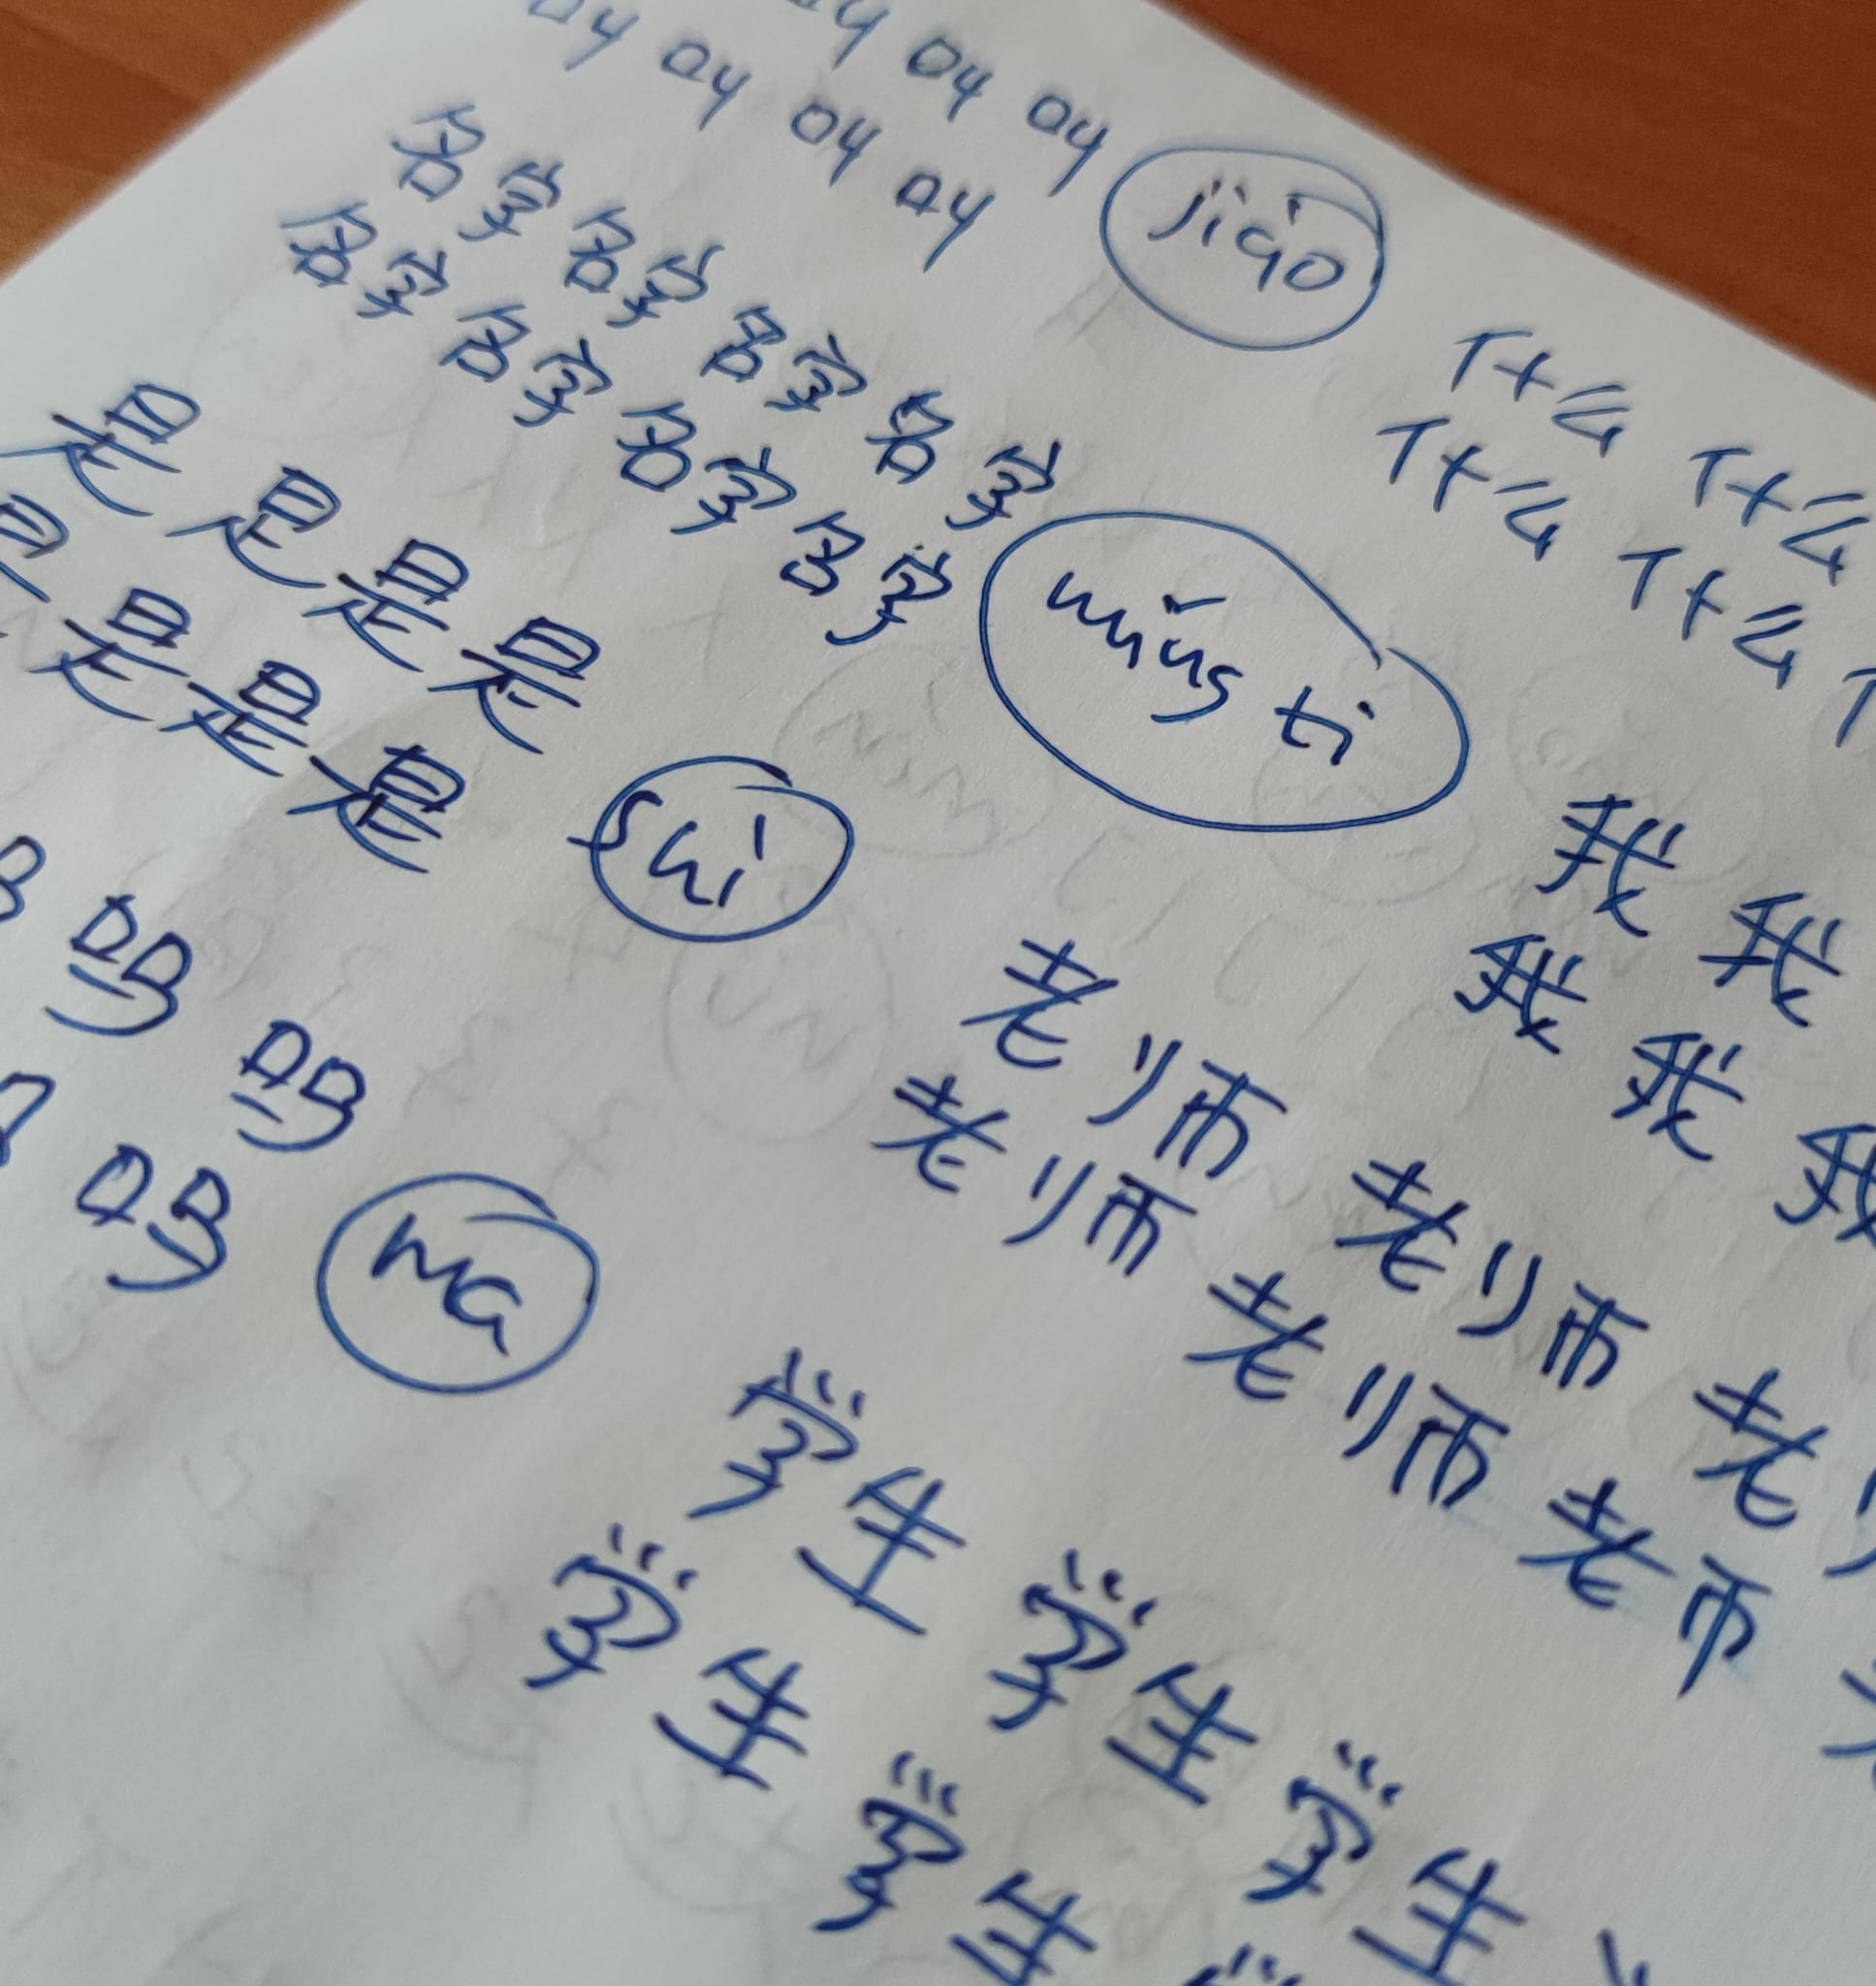 叫 叫 叫
叫 叫 叫 叫
jiào
名字 名字 名字 名字
名字 名字 名字 名字
mǐng ti
什么 什么
什么 什么
是 是 是 是
是 是 是 是
shì
我 我
我 我 我
吗 吗
吗
ma
老师 老师 老
老师 老师 老市
学生 学生 学生
学生 学生